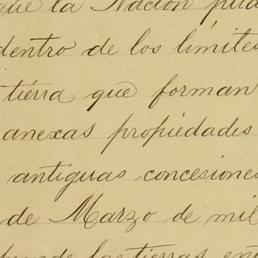 que la Nación pu
dentro de los límites
tierra que forman
anexas propiedades
antiguas concesiones
de Marzo de mil
las tierras en